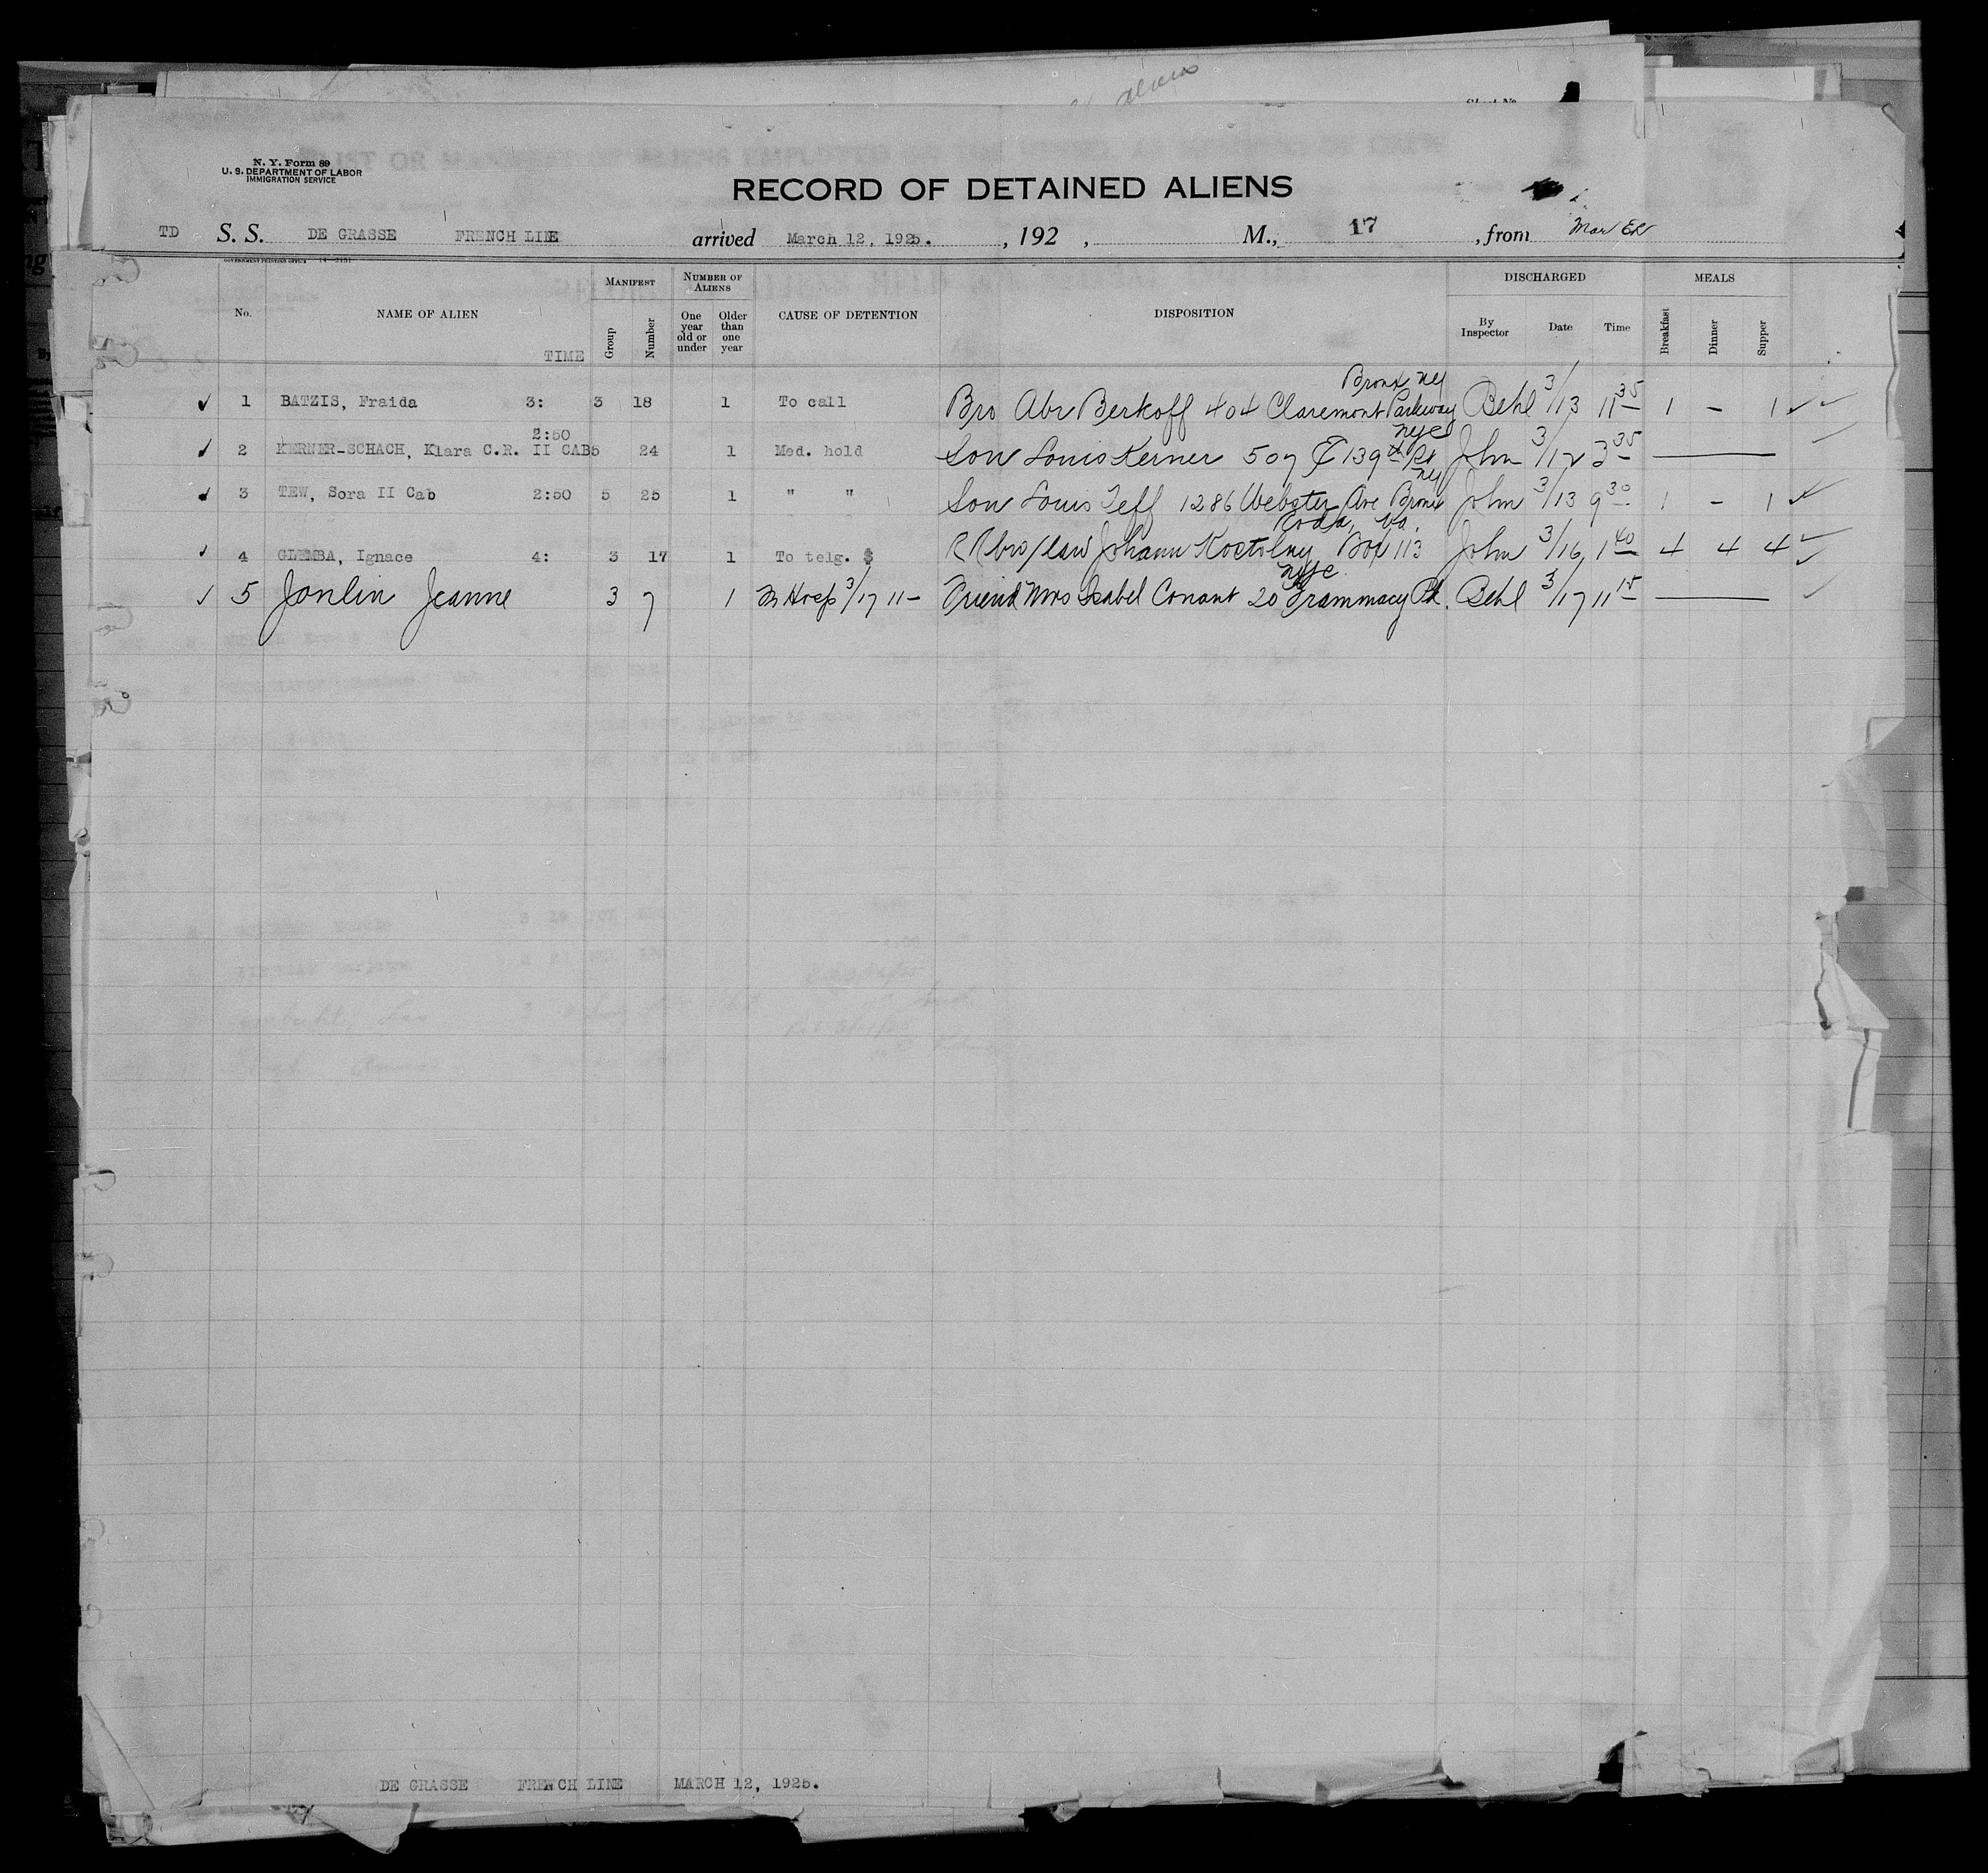 aliens
N. Y. Form 89
U. S. DEPARTMENT OF LABOR
IMMIGRATION SERVICE
RECORD OF DETAINED ALIENS
TD S. S. DE GRASSE FRENCH LINE arrived March 12, 1925. , 192 , M., 17 , from
No. NAME OF ALIEN TIME MANIFEST Group Number NUMBER OF ALIENS One year old or under Older than one year CAUSE OF DETENTION DISPOSITION DISCHARGED By Inspector Date Time MEALS Breakfast Dinner Supper
Bronx NY
✓ 1 BATZIS, Fraida 3: 3 18 1 To call Bro Abr Berkoff 404 Claremont Parkway Behl 3/13 11 35 1 - 1 ✓ ✓
2:50 NYC
✓ 2 KERNER-SCHACH, Klara C.R. II CAB 5 24 1 Med. hold Son Louis Kerner 507 E 139th St John 3/12 3 35 — ✓
NY
✓ 3 TEW, Sora II Cab 2:50 5 25 1 " " Son Louis Teff 1286 Webster Ave Bronx John 3/13 9 30 1 - 1 ✓
Roda, Va.
✓ 4 GLEMBA, Ignace 4: 3 17 1 To telg. $ RR bro/law Johann Kostolny Box 113 John 3/16 1 40 4 4 4 ✓
NYC
✓ 5 Jonlin Jeanne 3 7 1 Hosp 3/17 11 - Friend Mrs Isabel Conant 20 Grammacy Pk. Behl 3/17 11 15 — ✓
DE GRASSE FRENCH LINE MARCH 12, 1925.